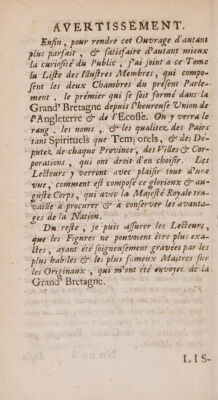 AVERTISSEMENT.
Enfin, pour rendre cet Ouvrage d'autant
plus parfait, & satisfaire d'autant mieux
la curiosité du Public, j'ai joint a ce Tome
la Liste des Illustres Membres, qui compo-
sent les deux Chambres du présent Parle-
ment, le prémier qui se soit formé dans la
Grand' Bretagne depuis l'heureuse Union de
l'Angleterre & de l'Ecosse. On y verra le
rang, les noms, & les qualitez des Pairs
tant Spirituels que Temporels, & des Dé-
putez de chaque Province, des Villes & Cor-
porations, qui ont droit d'en choisir. Les
Lecteurs y verront avec plaisir tout d'une
vue, comment est composé ce glorieux & au-
guste Corps, qui avec la Majesté Royale tra-
vaille à procurer & à conserver les avanta-
ges de la Nation.
Du reste, je puis assurer les Lecteurs,
que les Figures ne pouvoient être plus exa-
ctes, ayant été soigneusement gravées par les
plus habiles & les plus fameux Maitres sur
les Originaux, qui m'ont été envoyez de la
Grand' Bretagne.
LIS-